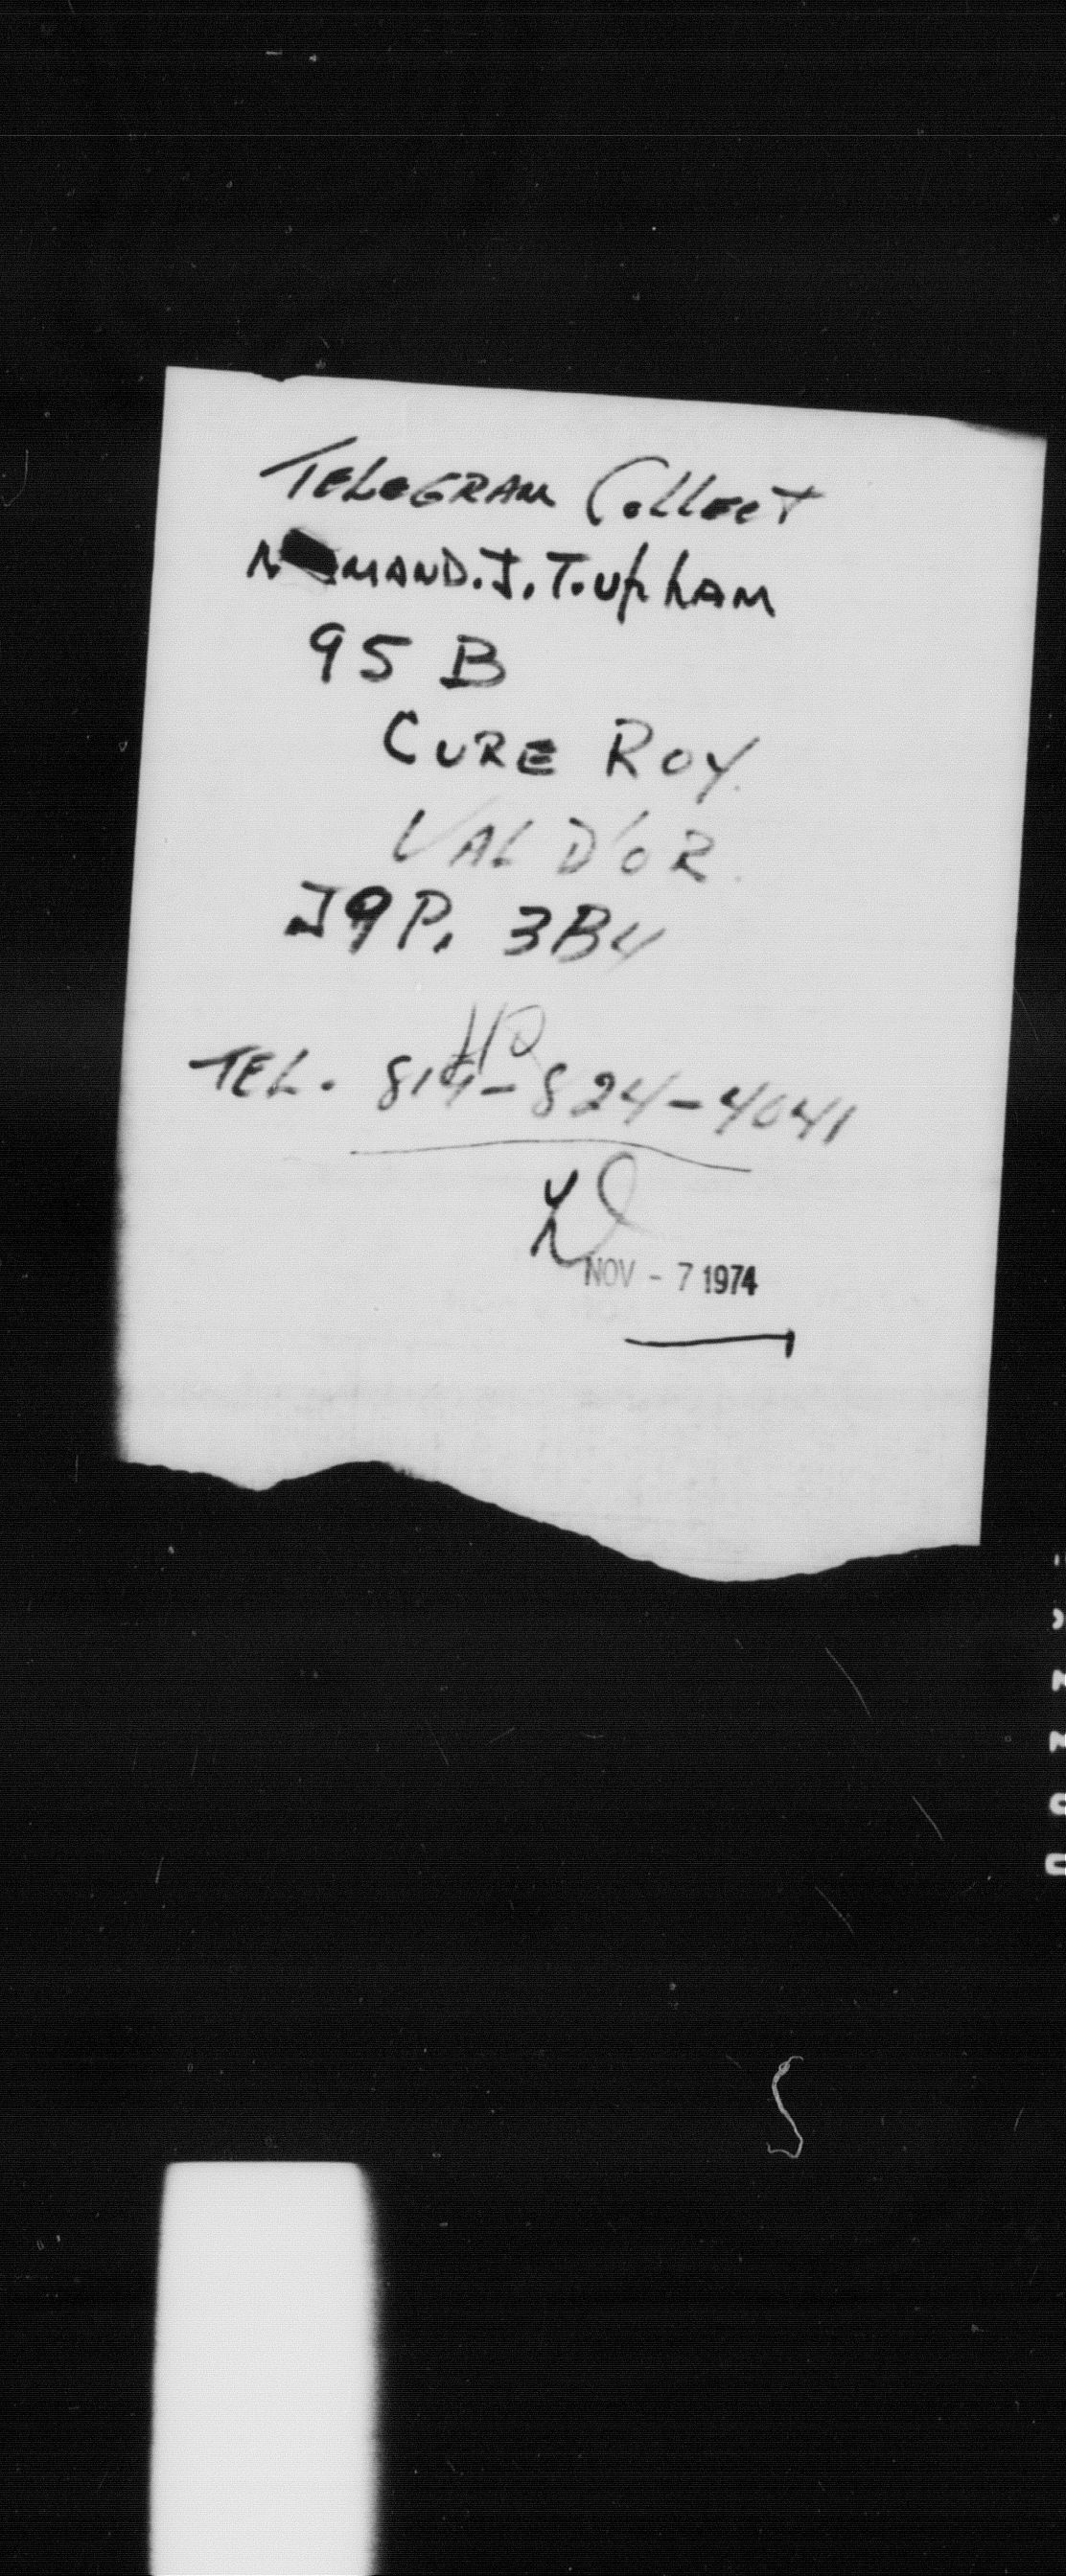 TELEGRAM Collect
MAND. J. T. UphAM
95 B
CURE ROY
VAL D'OR
J9P. 3B4
TEL. 819-824-4041
NOV - 7 1974